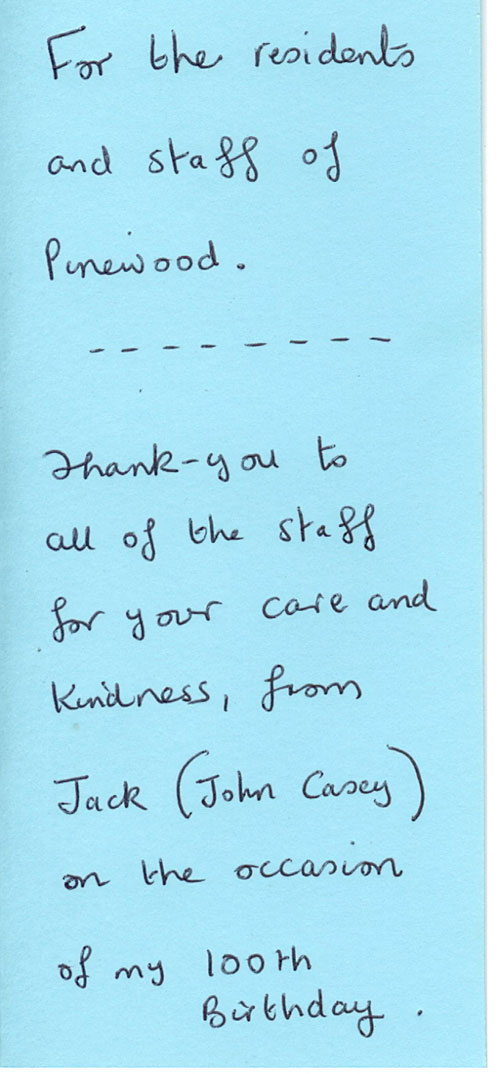 For the residents
and staff of
Pinewood.
--------
Thank-you to
all of the staff
for your care and
Kindness, from
Jack (John Casey)
on the occasion
of my 100th
Birthday.